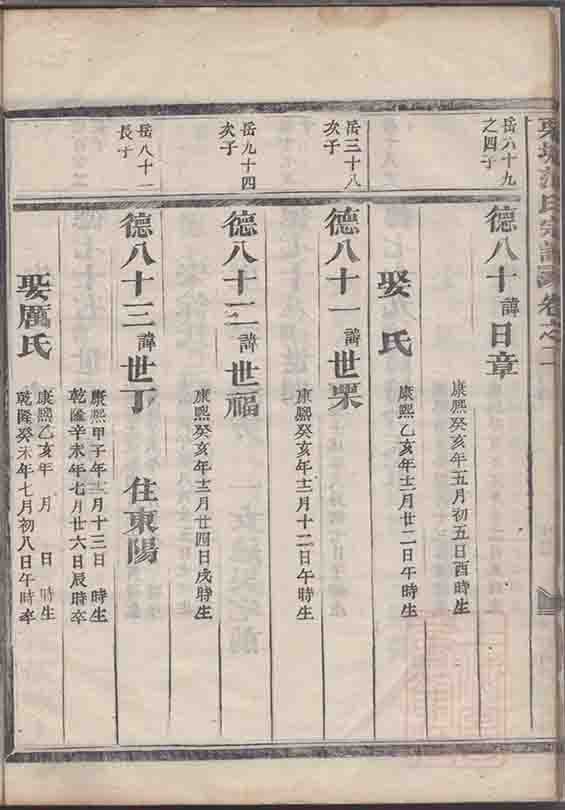 氏宗譜 卷之二
岳六十九
之四子
德八十諱日章
康熙癸亥年五月初五日酉時生
娶 氏
康熙乙亥年十二月廿二日午時生
岳三十八
次子
德八十一諱世杲
康熙癸亥年十二月十二日午時生
岳九十四
次子
德八十二諱世福
康熙癸亥年十二月廿四日戌時生
岳八十一
長子
德八十三諱世丁 住東陽
康熙甲子年十二月十三日 時生
乾隆辛未年七月廿六日辰時卒
娶厲氏
康熙乙亥年 月 日 時生
乾隆癸未年七月初八日午時卒